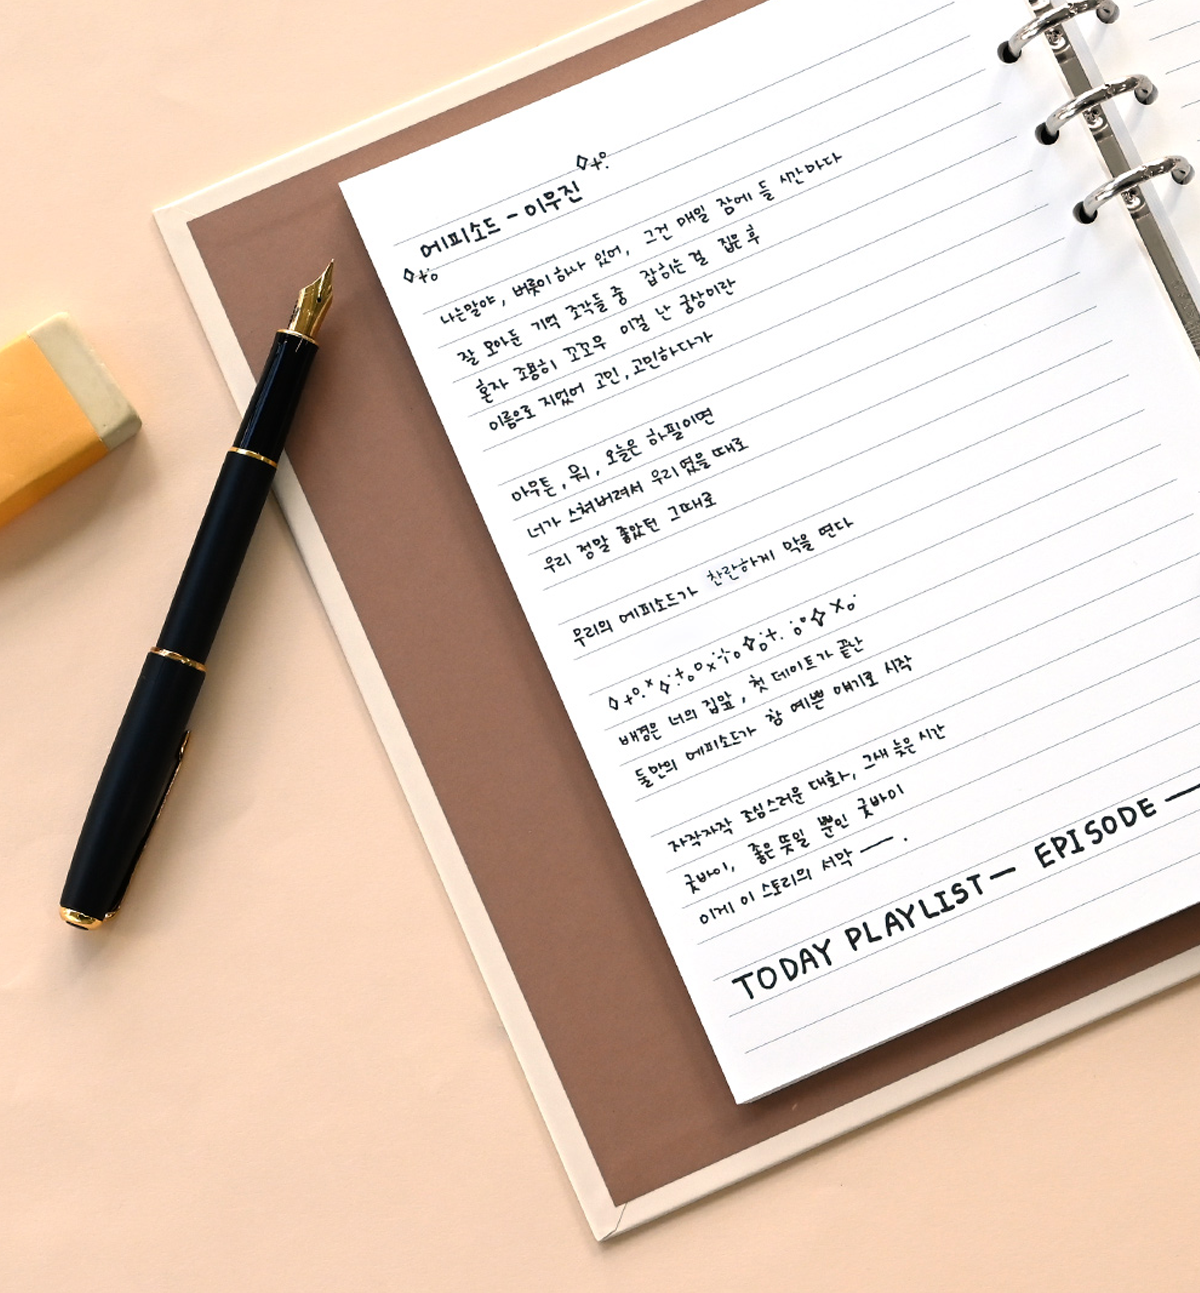 에피소드 - 이무진
나는말야, 버릇이 하나 있어, 그건 매일 잠에 들 시간마다
잘 모아둔 기억 조각들 중 잡히는 걸 집은 후
혼자 조용히 꼬꼬무 이걸 난 궁상이란
이름으로 지었어 고민, 고민하다가
아무튼, 뭐, 오늘은 하필이면
너가 스쳐버려서 우리였을 때로
우리 정말 좋았던 그때로
우리의 에피소드가 찬란하게 막을 연다
배경은 너의 집앞, 첫 데이트가 끝난
둘만의 에피소드가 참 예쁜 얘기로 시작
자작자작 조심스러운 대화, 그새 늦은 시간
굿바이, 좋은 뜻일 뿐인 굿바이
이게 이 스토리의 서막 —.
TODAY PLAYLIST — EPISODE —